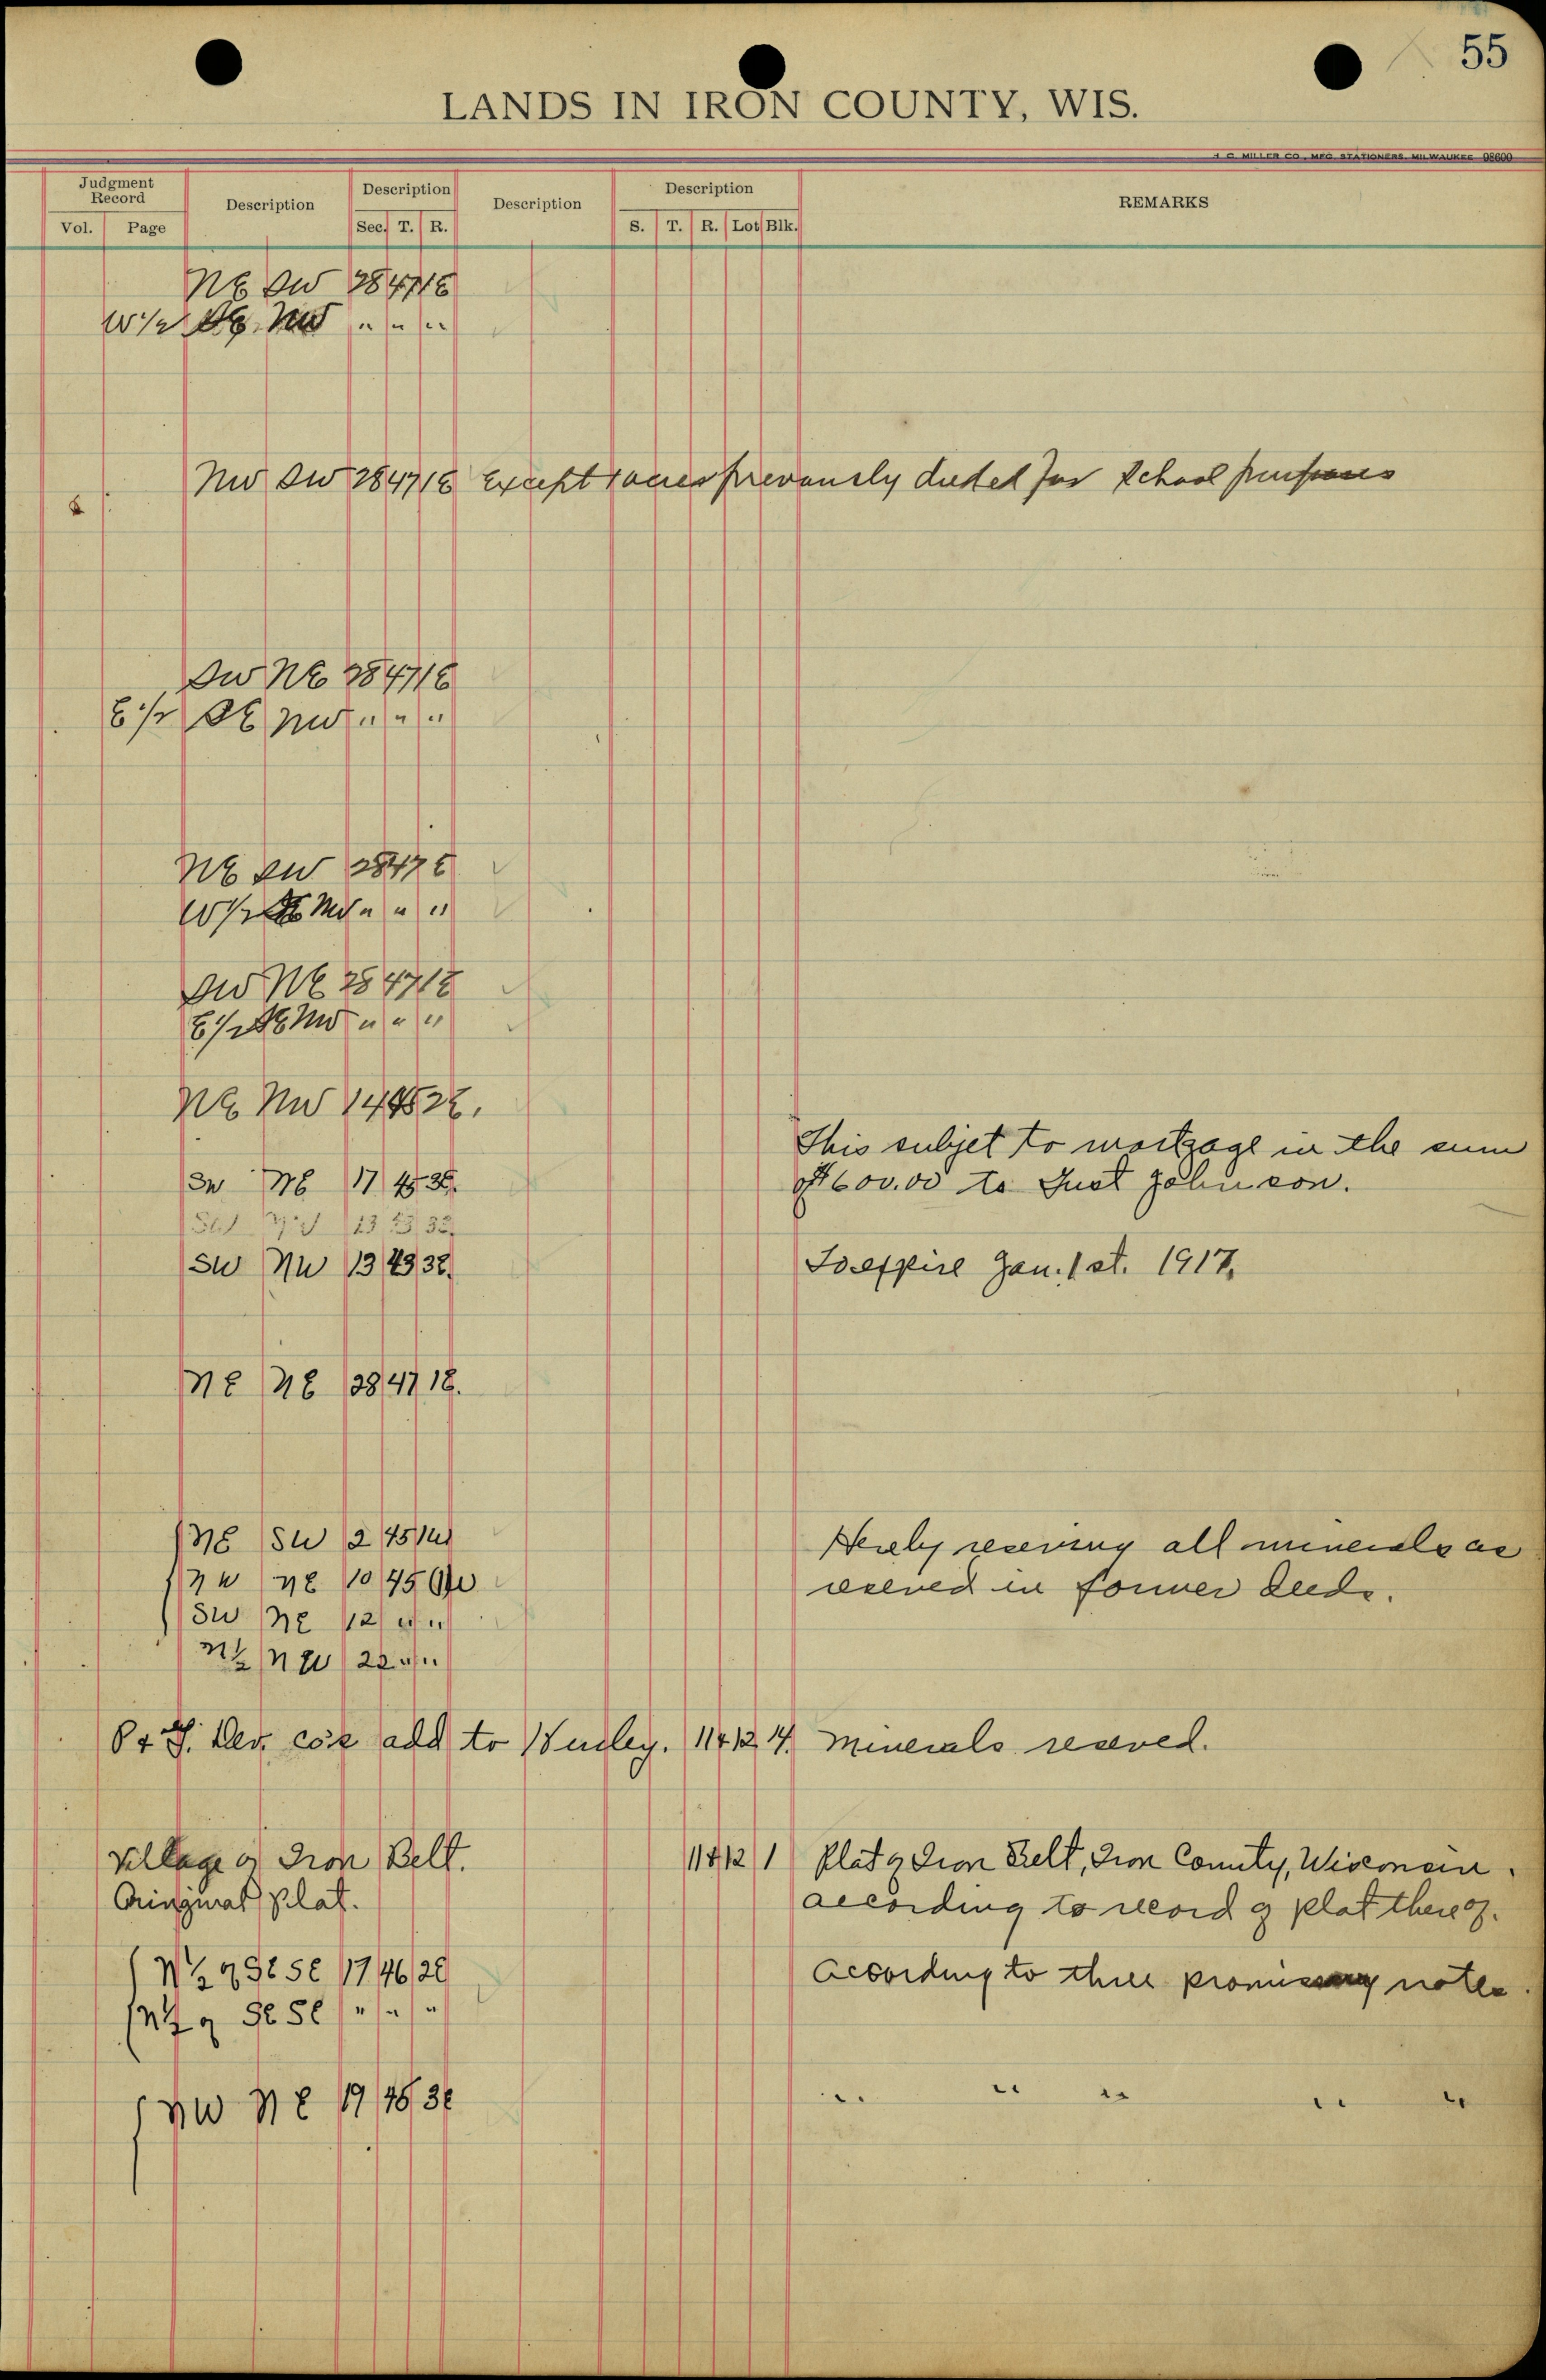 55
LANDS IN IRON COUNTY, WIS.
H. C. MILLER CO., MFG. STATIONERS, MILWAUKEE 98600
Judgment Record Description Description Description Description REMARKS
Vol. Page Sec. T. R. S. T. R. Lot Blk.
NE SW 28 47 1E
W 1/2 SE NW " " "
NW SW 28 47 1E Except acres previously deeded for School purposes
SW NE 28 47 1E
E 1/2 SE NW " " "
NE SW 28 47 E
W 1/2 SE NW " " "
SW NE 28 47 1E
E 1/2 SE NW " " "
NE NW 14
This subjet to mortgage in the sum
SW NE 17 45
of $600.00 to Gust Johnson.
SW NW 13 43 3E
To expire Jan. 1 st. 1917.
NE NE 28 47 1E.
NE SW 2 45 1W
Hereby reserving all minerals as
NW NE 10 45
reserved in former deeds.
SW NE 12 " "
N 1/2 NW 22 " "
Dev. co's add to Hurley. 11 4 Minerals reserved.
Village of Iron Belt. 11 12 1 Plat of Iron Belt, Iron County, Wisconsin.
Original plat. according to record of plat thereof.
N 1/2 of SE SE 17 46 2E According to three promissory notes.
of SE SE " " "
NW NE 19 3E " " " " "